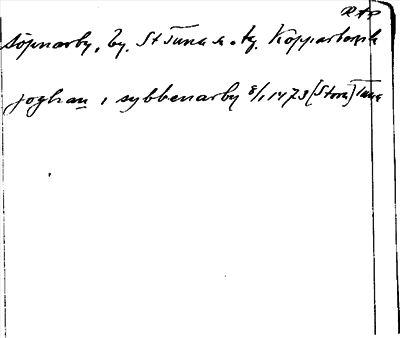 RAP
Söpnarby, by, St Tuna sn. o. tg. Kopparbergs
joghan i sybbenarby 8/1 1473 [Stora] Tuna